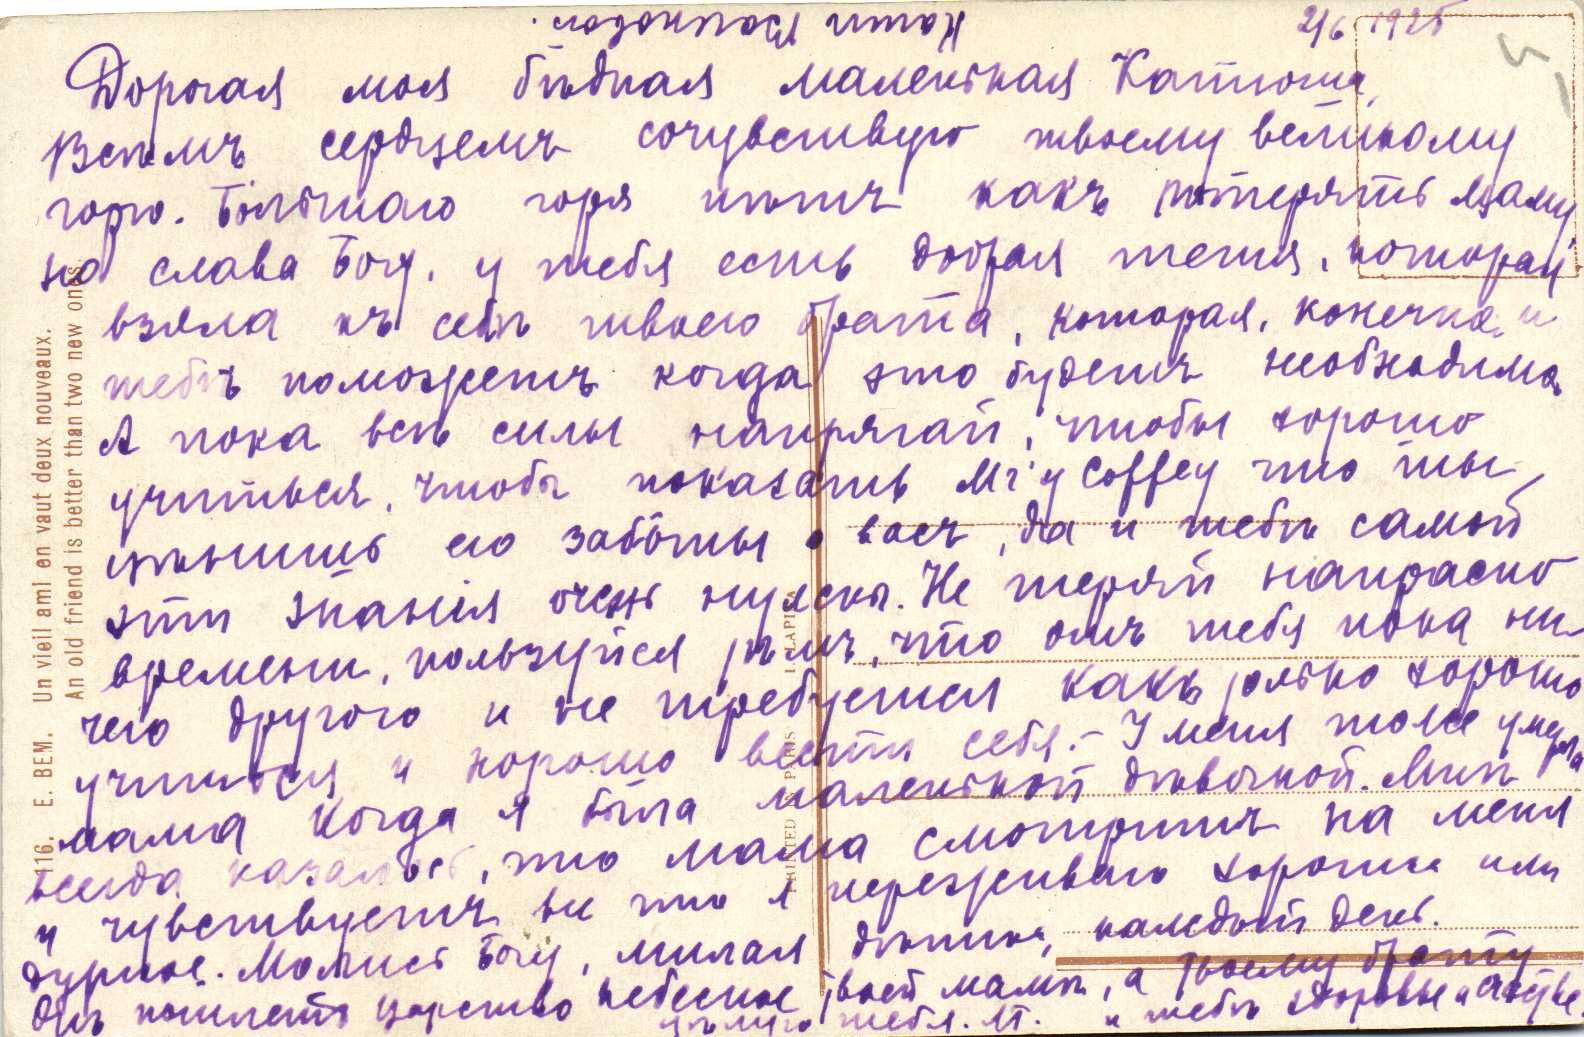 2/6 1925
Дорогая моя бѣдная маленькая Катюша,
Всѣмъ сердцемъ сочувствую твоему великому
горю. Большаго горя нѣтъ какъ потерять маму
но слава Богу, у тебя есть добрая тетя, которая
взяла къ себѣ твоего брата, которая, конечно, и
тебѣ поможетъ когда это будетъ необходимо.
А пока всѣ силы напрягай, чтобы хорошо
учиться, чтобы показать Mr'у Coffey что ты
цѣнишь его заботы о васъ, да и тебѣ самой
эти знанія очень нужны. Не теряй напрасно
времени, пользуйся тѣмъ, что отъ тебя пока ни-
чего другого и не требуется какъ только хорошо
учиться и хорошо вести себя. - У меня тоже умерла
мама когда я была маленькой дѣвочкой. Мнѣ
всегда казалось, что мама смотритъ на меня
и чувствуетъ все что я переживаю хорошее или
дурное. Молись Богу, милая дѣтка, каждый день.
Онъ пошлетъ царство небесное твоей мамѣ, а твоему брату
и тебѣ здоровье и счастье.
цѣлую тебя. М.
116. E. BEM. Un vieil ami en vaut deux nouveaux.
An old friend is better than two new ones.
PRINTED IN PARIS I. LAPINA